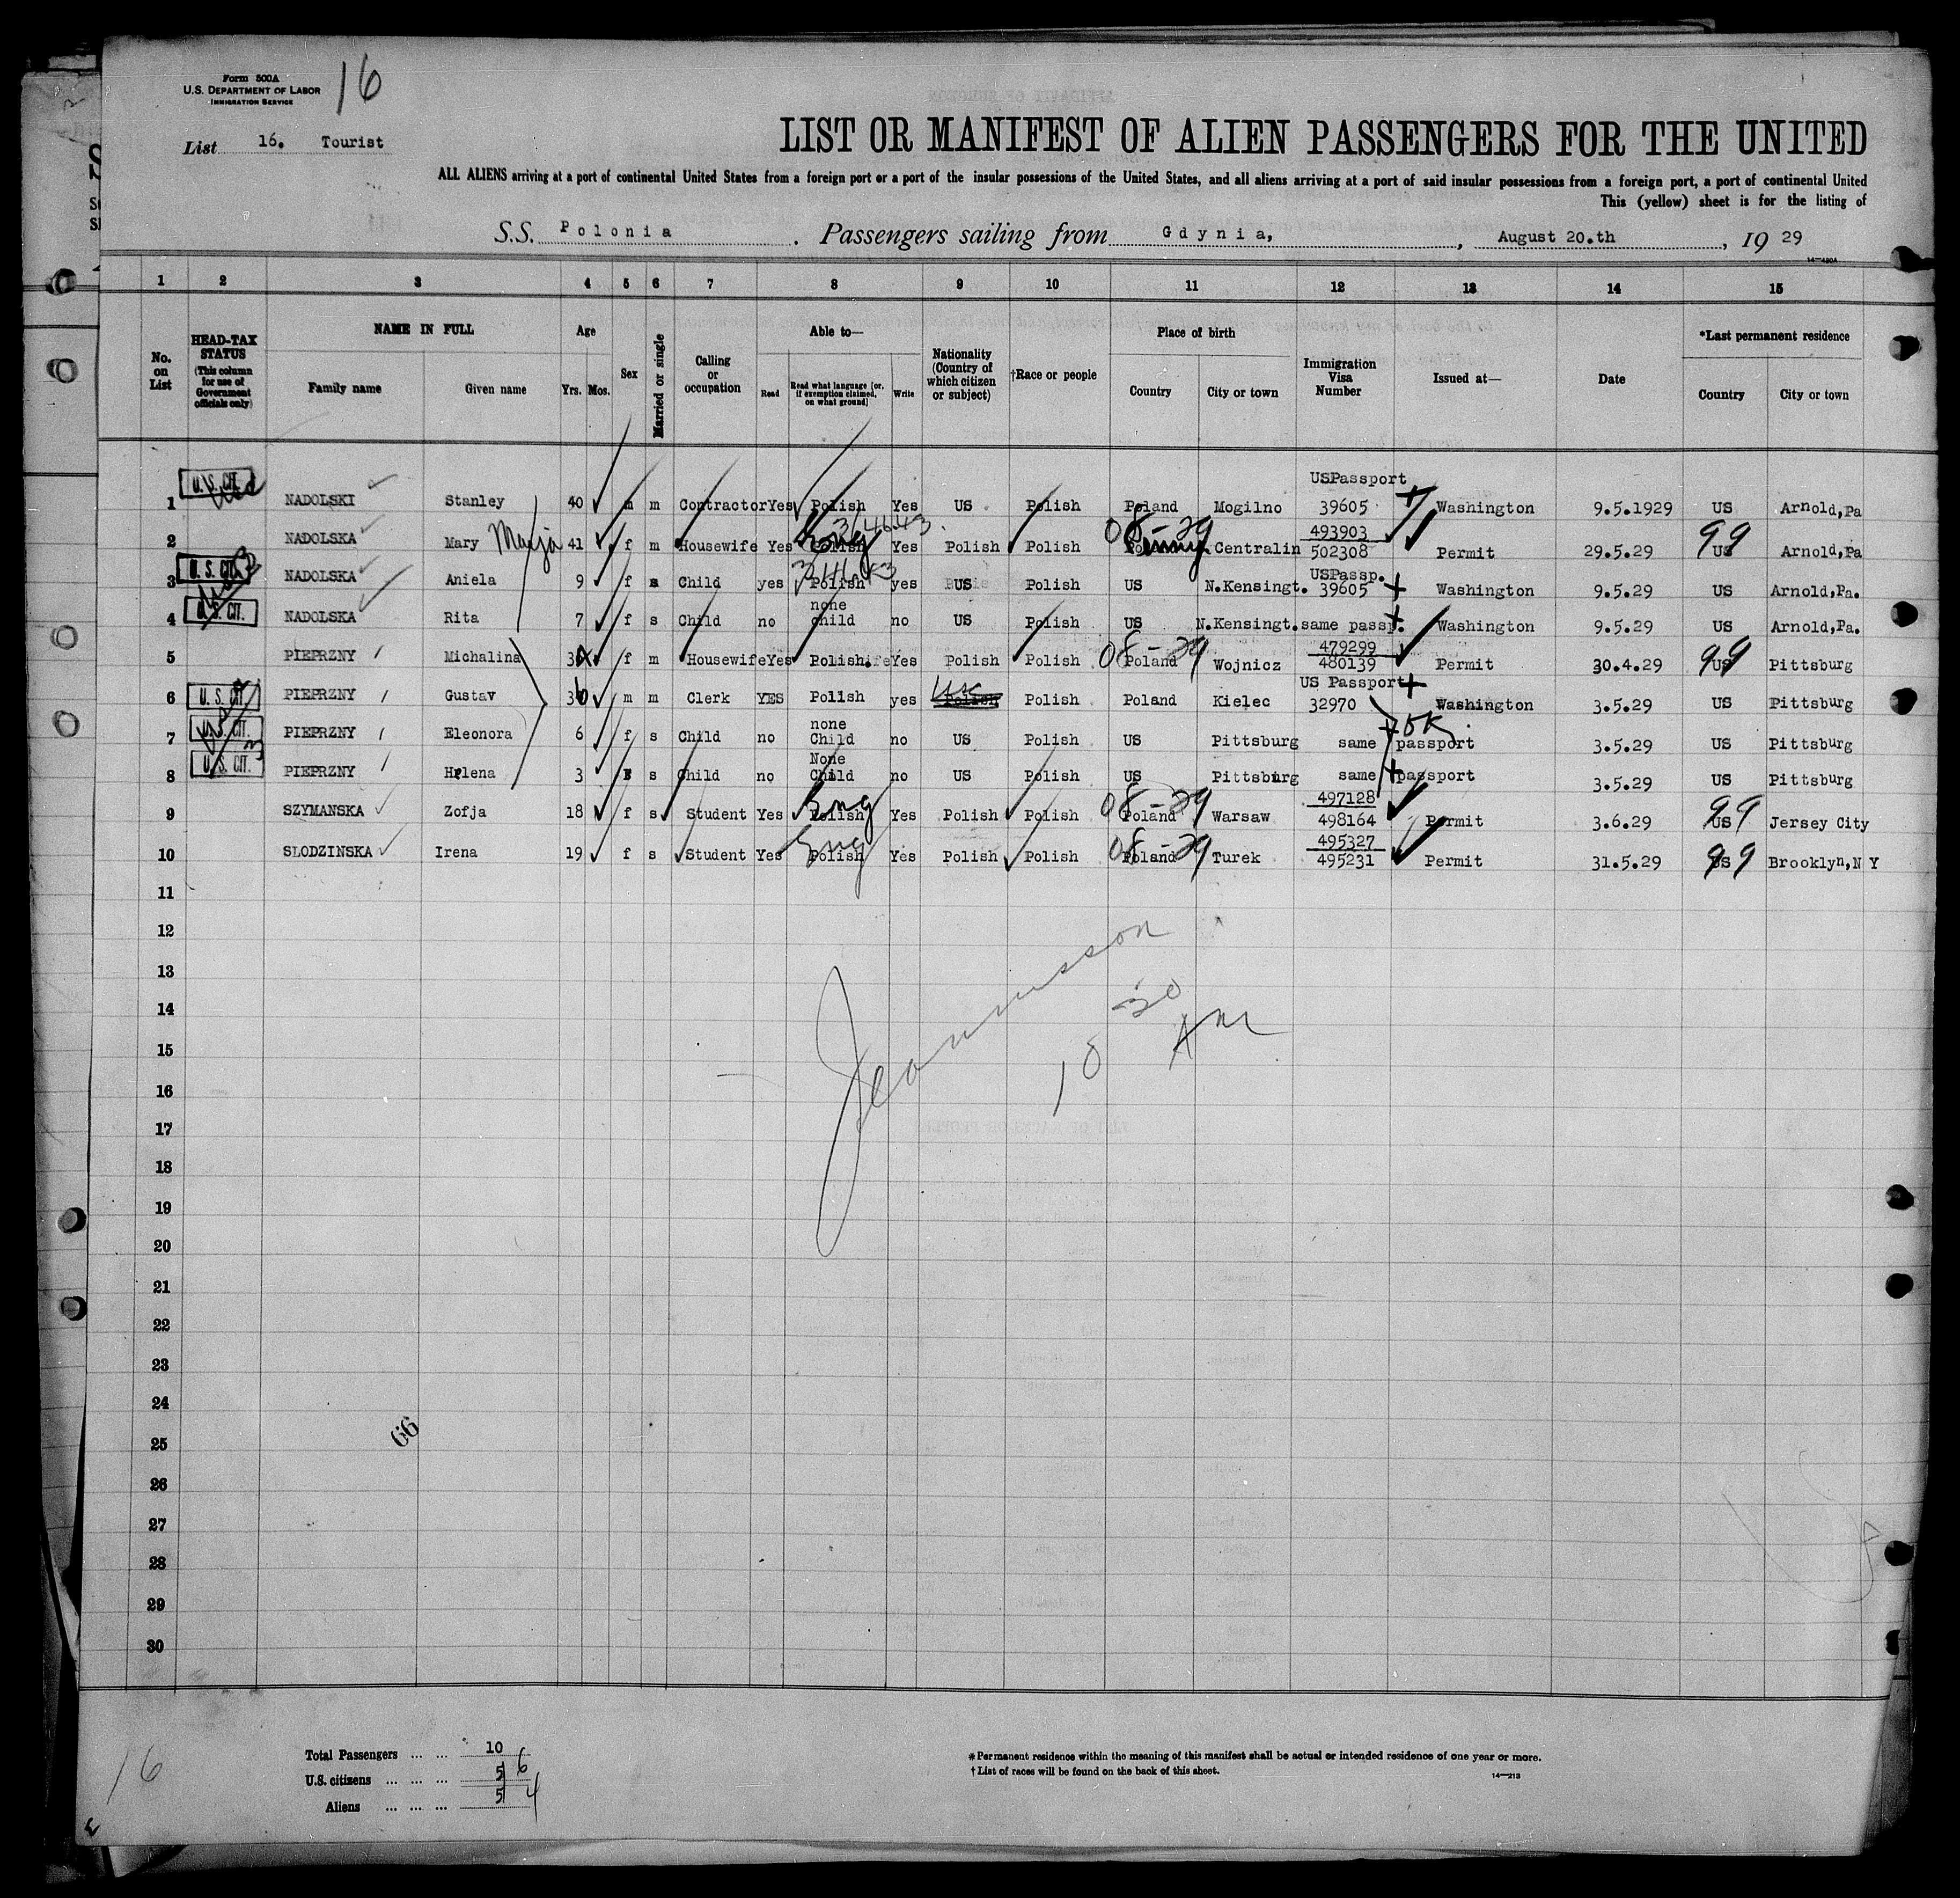 Form 500A
U.S. DEPARTMENT OF LABOR
IMMIGRATION SERVICE
16
List 16. Tourist
LIST OR MANIFEST OF ALIEN PASSENGERS FOR THE UNITED
ALL ALIENS arriving at a port of continental United States from a foreign port or a port of the insular possessions of the United States, and all aliens arriving at a port of said insular possessions from a foreign port, a port of continental United
This (yellow) sheet is for the listing of
S.S. Polonia. Passengers sailing from Gdynia, , August 20.th , 19 29
1 2 3 4 5 6 7 8 9 10 11 12 13 14 15
No. on List
HEAD-TAX STATUS (This column for use of Government officials only)
NAME IN FULL
Family name Given name
Age
Yrs. Mos.
Sex
Married or single
Calling or occupation
Able to—
Read Read what language [or, if exemption claimed, on what ground] Write
Nationality (Country of which citizen or subject)
†Race or people
Place of birth
Country City or town
Immigration Visa Number
Issued at—
Date
*Last permanent residence
Country City or town
1 U.S. CIT. NADOLSKI Stanley 40 m m Contractor Yes Polish Yes US Polish Poland Mogilno USPassport 39605 Washington 9.5.1929 US Arnold,Pa
2 NADOLSKA Mary Marja 41 f m Housewife Yes Polish Eng Yes Polish Polish 08-29 Centralin 493903 502308 Permit 29.5.29 US 99 Arnold,Pa
3 U.S. CIT. NADOLSKA Aniela 9 f s Child yes Polish yes US Polish US N.Kensingt. USPassp. 39605 Washington 9.5.29 US Arnold,Pa.
4 U.S. CIT. NADOLSKA Rita 7 f s Child no none child no US Polish US N.Kensingt. same passp. Washington 9.5.29 US Arnold,Pa.
5 PIEPRZNY Michalina f m Housewife Yes Polish. Yes Polish Polish Poland 08-29 Wojnicz 479299 480139 Permit 30.4.29 US 99 Pittsburg
6 U.S. CIT. PIEPRZNY Gustav 36 m m Clerk YES Polish yes Polish Polish Poland Kielec US Passport 32970 Washington 3.5.29 US Pittsburg
7 U.S. CIT. PIEPRZNY Eleonora 6 f s Child no none Child no US Polish US Pittsburg same passport OK 3.5.29 US Pittsburg
8 U.S. CIT. PIEPRZNY Helena 3 f s Child no None Child no US Polish US Pittsburg same passport 3.5.29 US Pittsburg
9 SZYMANSKA Zofja 18 f s Student Yes Polish Eng Yes Polish Polish Poland 08-29 Warsaw 497128 498164 Permit 3.6.29 US 99 Jersey City
10 SLODZINSKA Irena 19 f s Student Yes Polish Eng Yes Polish Polish Poland 08-29 Turek 495327 495231 Permit 31.5.29 US 99 Brooklyn,N Y
11
12
13
14
15
10 30 AM
16
17
18
19
20
21
22
23
24
66
25
26
27
28
29
30
Total Passengers ... ... 10
U.S. citizens ... ... ... 5 6
Aliens ... ... ... 5 4
16
*Permanent residence within the meaning of this manifest shall be actual or intended residence of one year or more.
†List of races will be found on the back of this sheet.
14—213